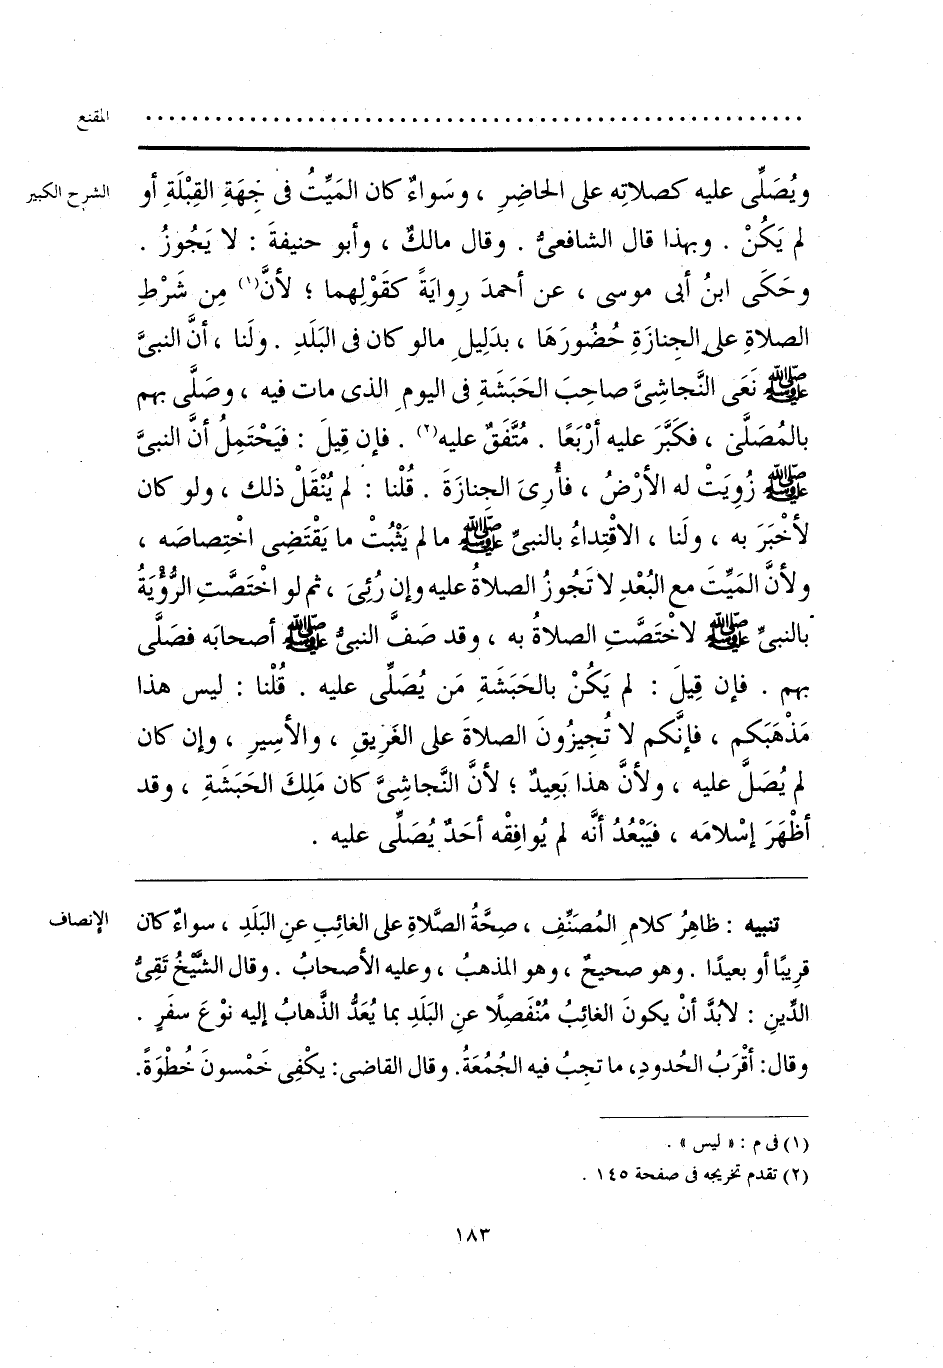 المقنع ............................................................
الشرح الكبير ويُصَلِّى عليه كصلاتِه على الحاضِرِ ، وسَواءٌ كان المَيِّتُ فى جِهَةِ القِبْلَةِ أو
لم يَكُنْ . وبهذا قال الشافعىُّ . وقال مالكٌ ، وأبو حنيفةَ : لا يَجُوزُ .
وحَكَى ابنُ أبى موسى ، عن أحمدَ رِوايَةً كقَوْلِهما ؛ لأنَّ(١) مِن شَرْطِ
الصلاةِ على الجِنازَةِ حُضُورَها ، بدَلِيلِ مالو كان فى البَلَدِ . ولَنا ، أنَّ النبىَّ
ﷺ نَعَى النَّجاشِىَّ صاحِبَ الحَبَشَةِ فى اليومِ الذى مات فيه ، وصَلَّى بهم
بالمُصَلَّى ، فكَبَّرَ عليه أرْبَعًا . مُتَّفَقٌ عليه(٢) . فإن قِيلَ : فيَحْتَمِلُ أنَّ النبىَّ
ﷺ زُوِيَتْ له الأرْضُ ، فأُرِىَ الجِنازَةَ . قُلْنا : لم يُنْقَلْ ذلك ، ولو كان
لأخْبَرَ به ، ولَنا ، الاقْتِداءُ بالنبىِّ ﷺ مالم يَثْبُتْ ما يَقْتَضِى اخْتِصاصَه ،
ولأنَّ المَيِّتَ مع البُعْدِ لا تَجُوزُ الصلاةُ عليه وإن رُئِىَ ، ثم لو اخْتَصَّتِ الرُّؤْيَةُ
بالنبىِّ ﷺ لاخْتَصَّتِ الصلاةُ به ، وقد صَفَّ النبىُّ ﷺ أصحابَه فصَلَّى
بهم . فإن قِيلَ : لم يَكُنْ بالحَبَشَةِ مَن يُصَلِّى عليه . قُلْنا : ليس هذا
مَذْهَبَكم ، فإنَّكم لا تُجِيزُونَ الصلاةَ على الغَرِيقِ ، والأسِيرِ ، وإن كان
لم يُصَلَّ عليه ، ولأنَّ هذا بَعِيدٌ ؛ لأنَّ النَّجاشِىَّ كان مَلِكَ الحَبَشَةِ ، وقد
أظْهَرَ إسْلامَه ، فيَبْعُدُ أنَّه لم يُوافِقْه أحَدٌ يُصَلِّى عليه .
الإنصاف تنبيه : ظاهِرُ كلامِ المُصَنِّفِ ، صِحَّةُ الصَّلاةِ على الغائبِ عنِ البَلَدِ ، سواءٌ كان
قرِيبًا أو بعيدًا . وهو صحيحٌ ، وهو المذهبُ ، وعليه الأصحابُ . وقال الشَّيْخُ تَقِىُّ
الدِّينِ : لابُدَّ أنْ يكونَ الغائبُ مُنْفَصِلًا عنِ البَلَدِ بما يُعَدُّ الذَّهابُ إليه نوْعَ سفَرٍ .
وقال: أقْرَبُ الحُدودِ، ما تجِبُ فيه الجُمُعَةُ. وقال القاضى: يكْفِى خَمْسونَ خُطْوَةً.
(١) فى م : « ليس » .
(٢) تقدم تخريجه فى صفحة ١٤٥ .
١٨٣